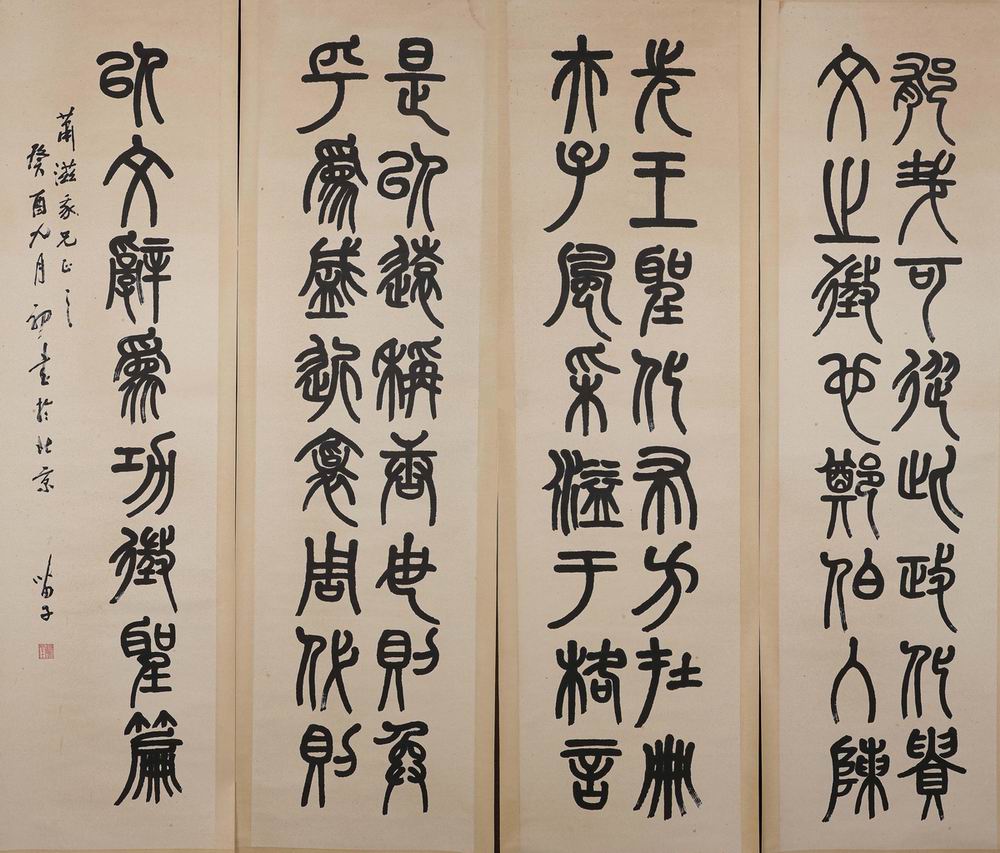 郁哉可從此政化貴
文之徵也鄭伯入陳
先王聖化布方在冊
亦子風采溢于格言
是以遠稱唐世則奐
乎為盛近褒周代則
以文辭為功徵聖篇
蕭滋家兄正之
癸酉九月 書於北京